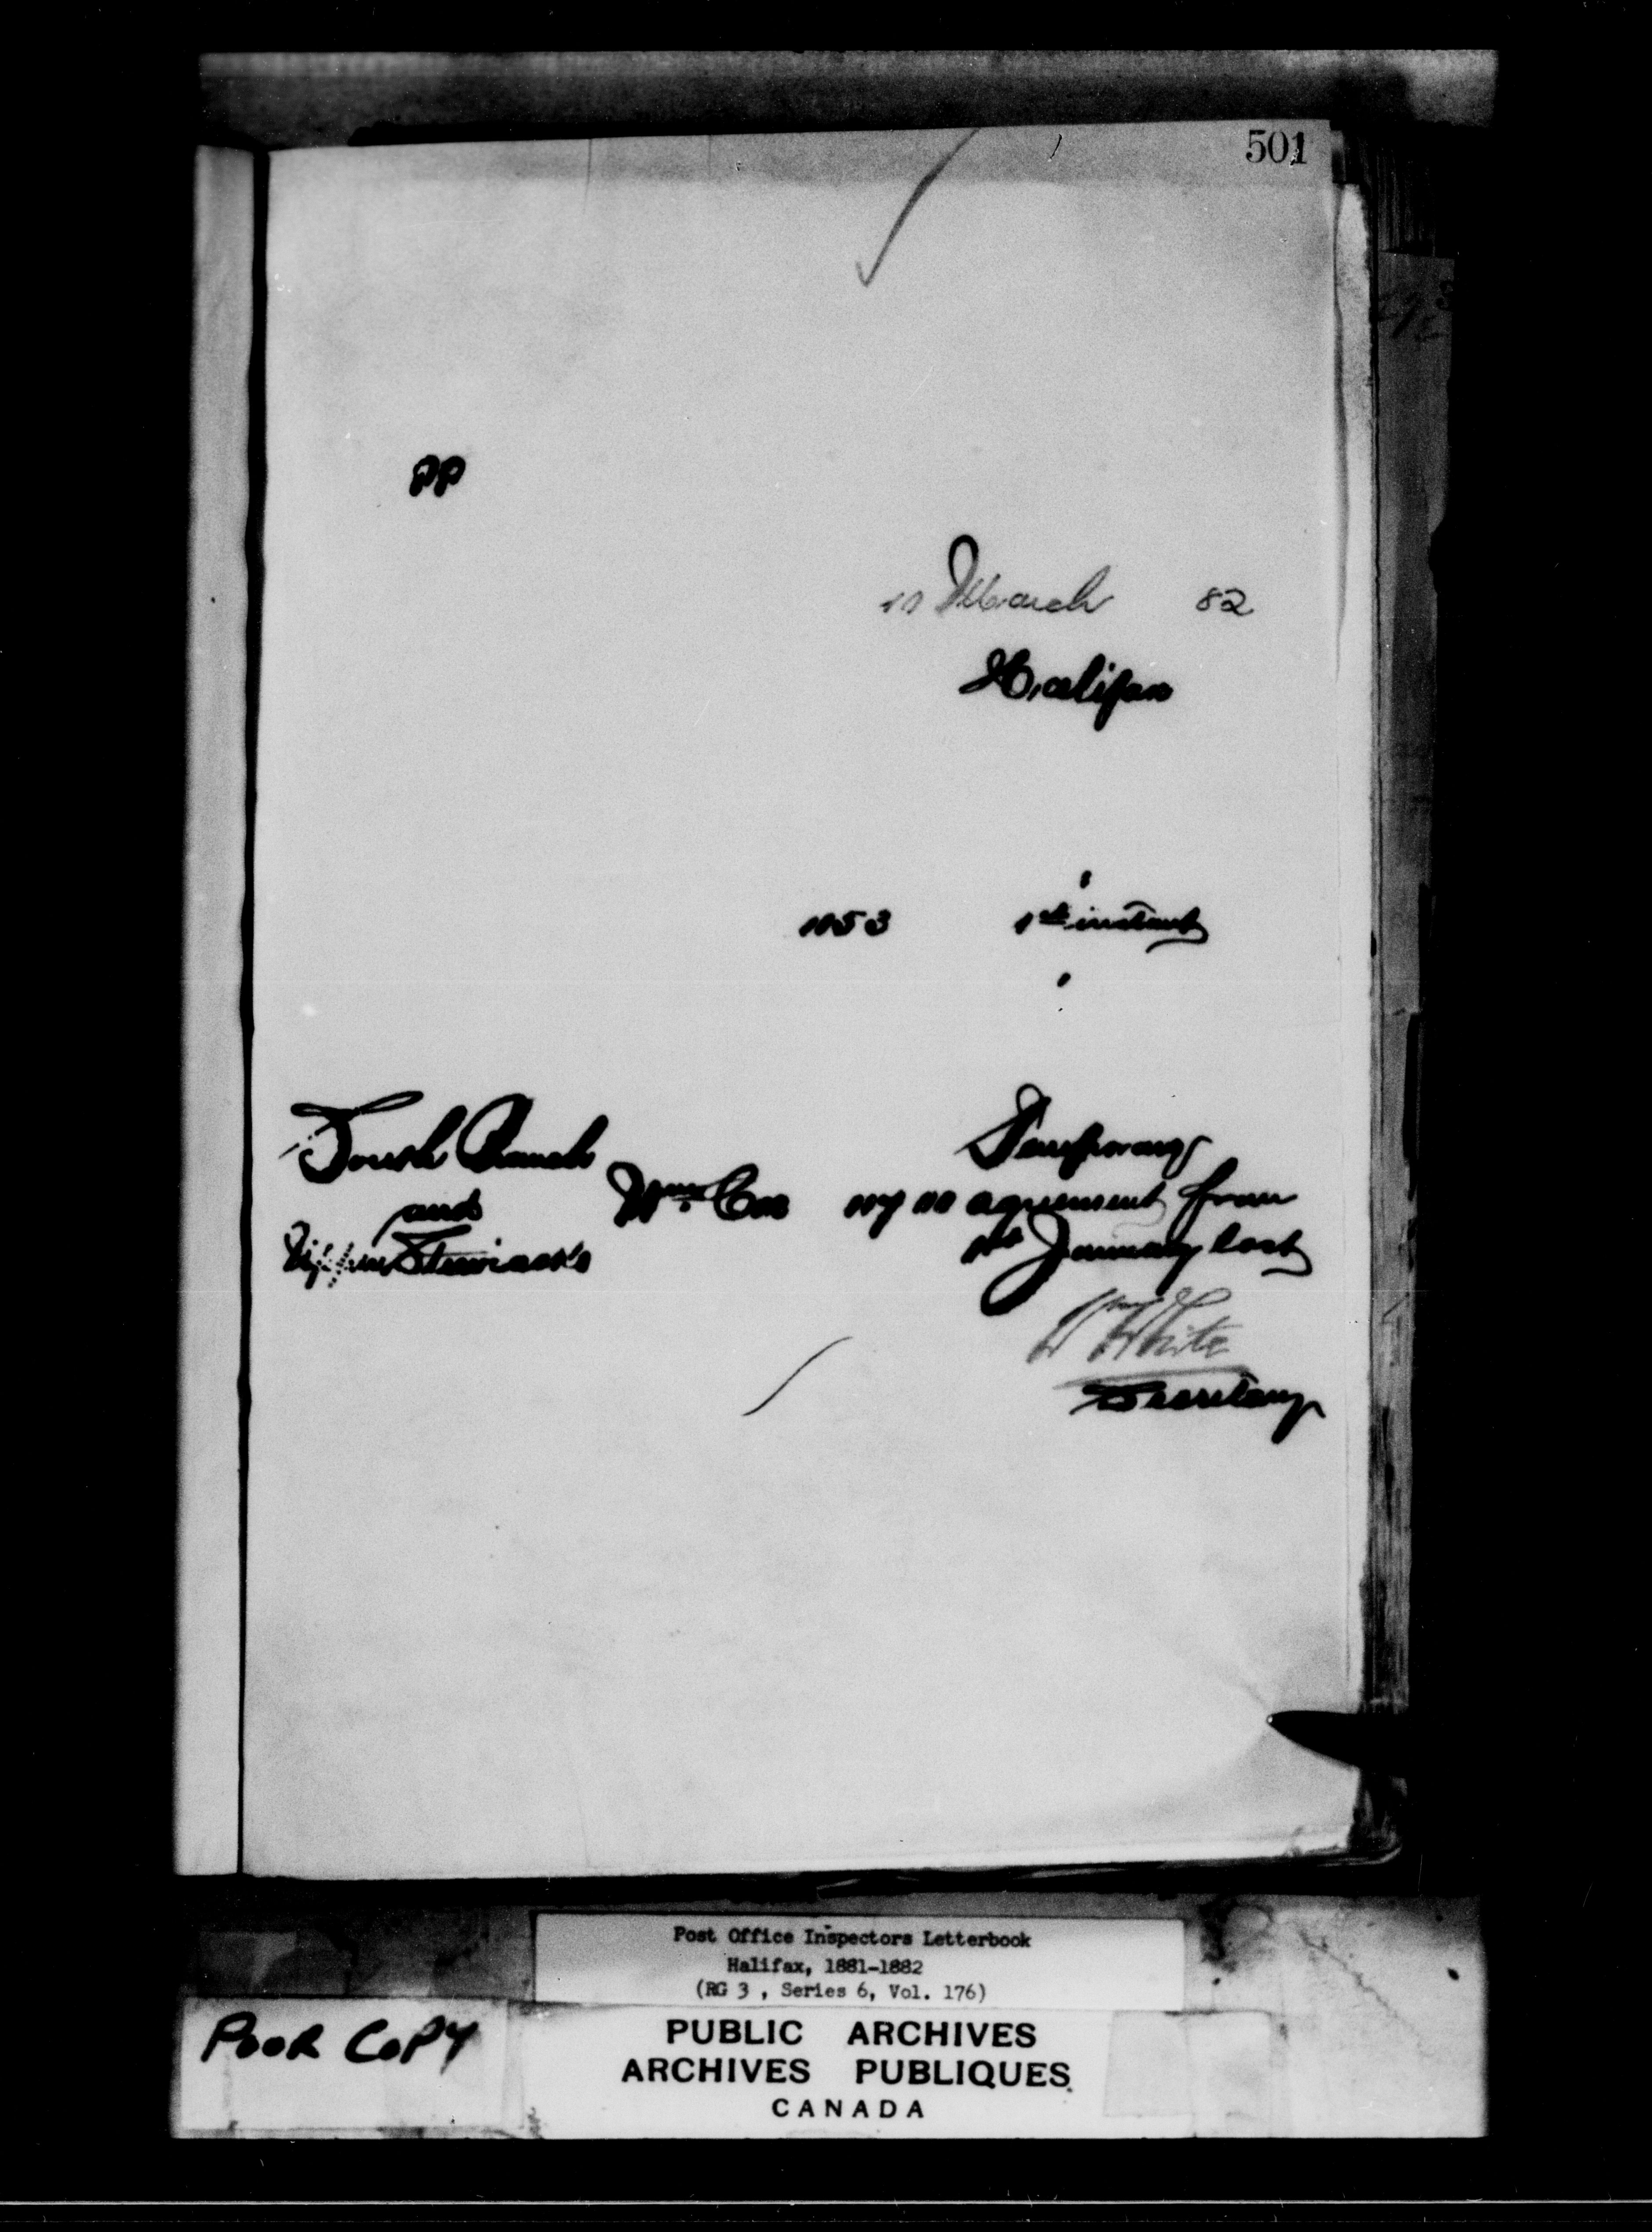 501
PP
11 March 82
Halifax
1153 1st instant
South Branch
and
Upper Stewiacke
Wm Cox
Temporary
agreement from
1st January last
Wm White
Secretary
Post Office Inspectors Letterbook
Halifax, 1881-1882
(RG 3 , Series 6, Vol. 176)
POOR COPY
PUBLIC ARCHIVES
ARCHIVES PUBLIQUES
CANADA